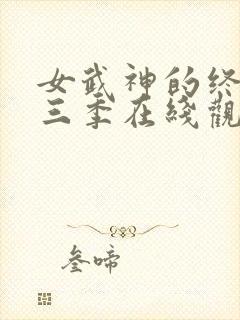 女武神的终
三季在綫觀
叁啼